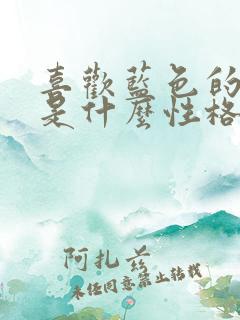 喜歡藍色的
是什麼性格
阿扎茲
未經同意禁止轉載